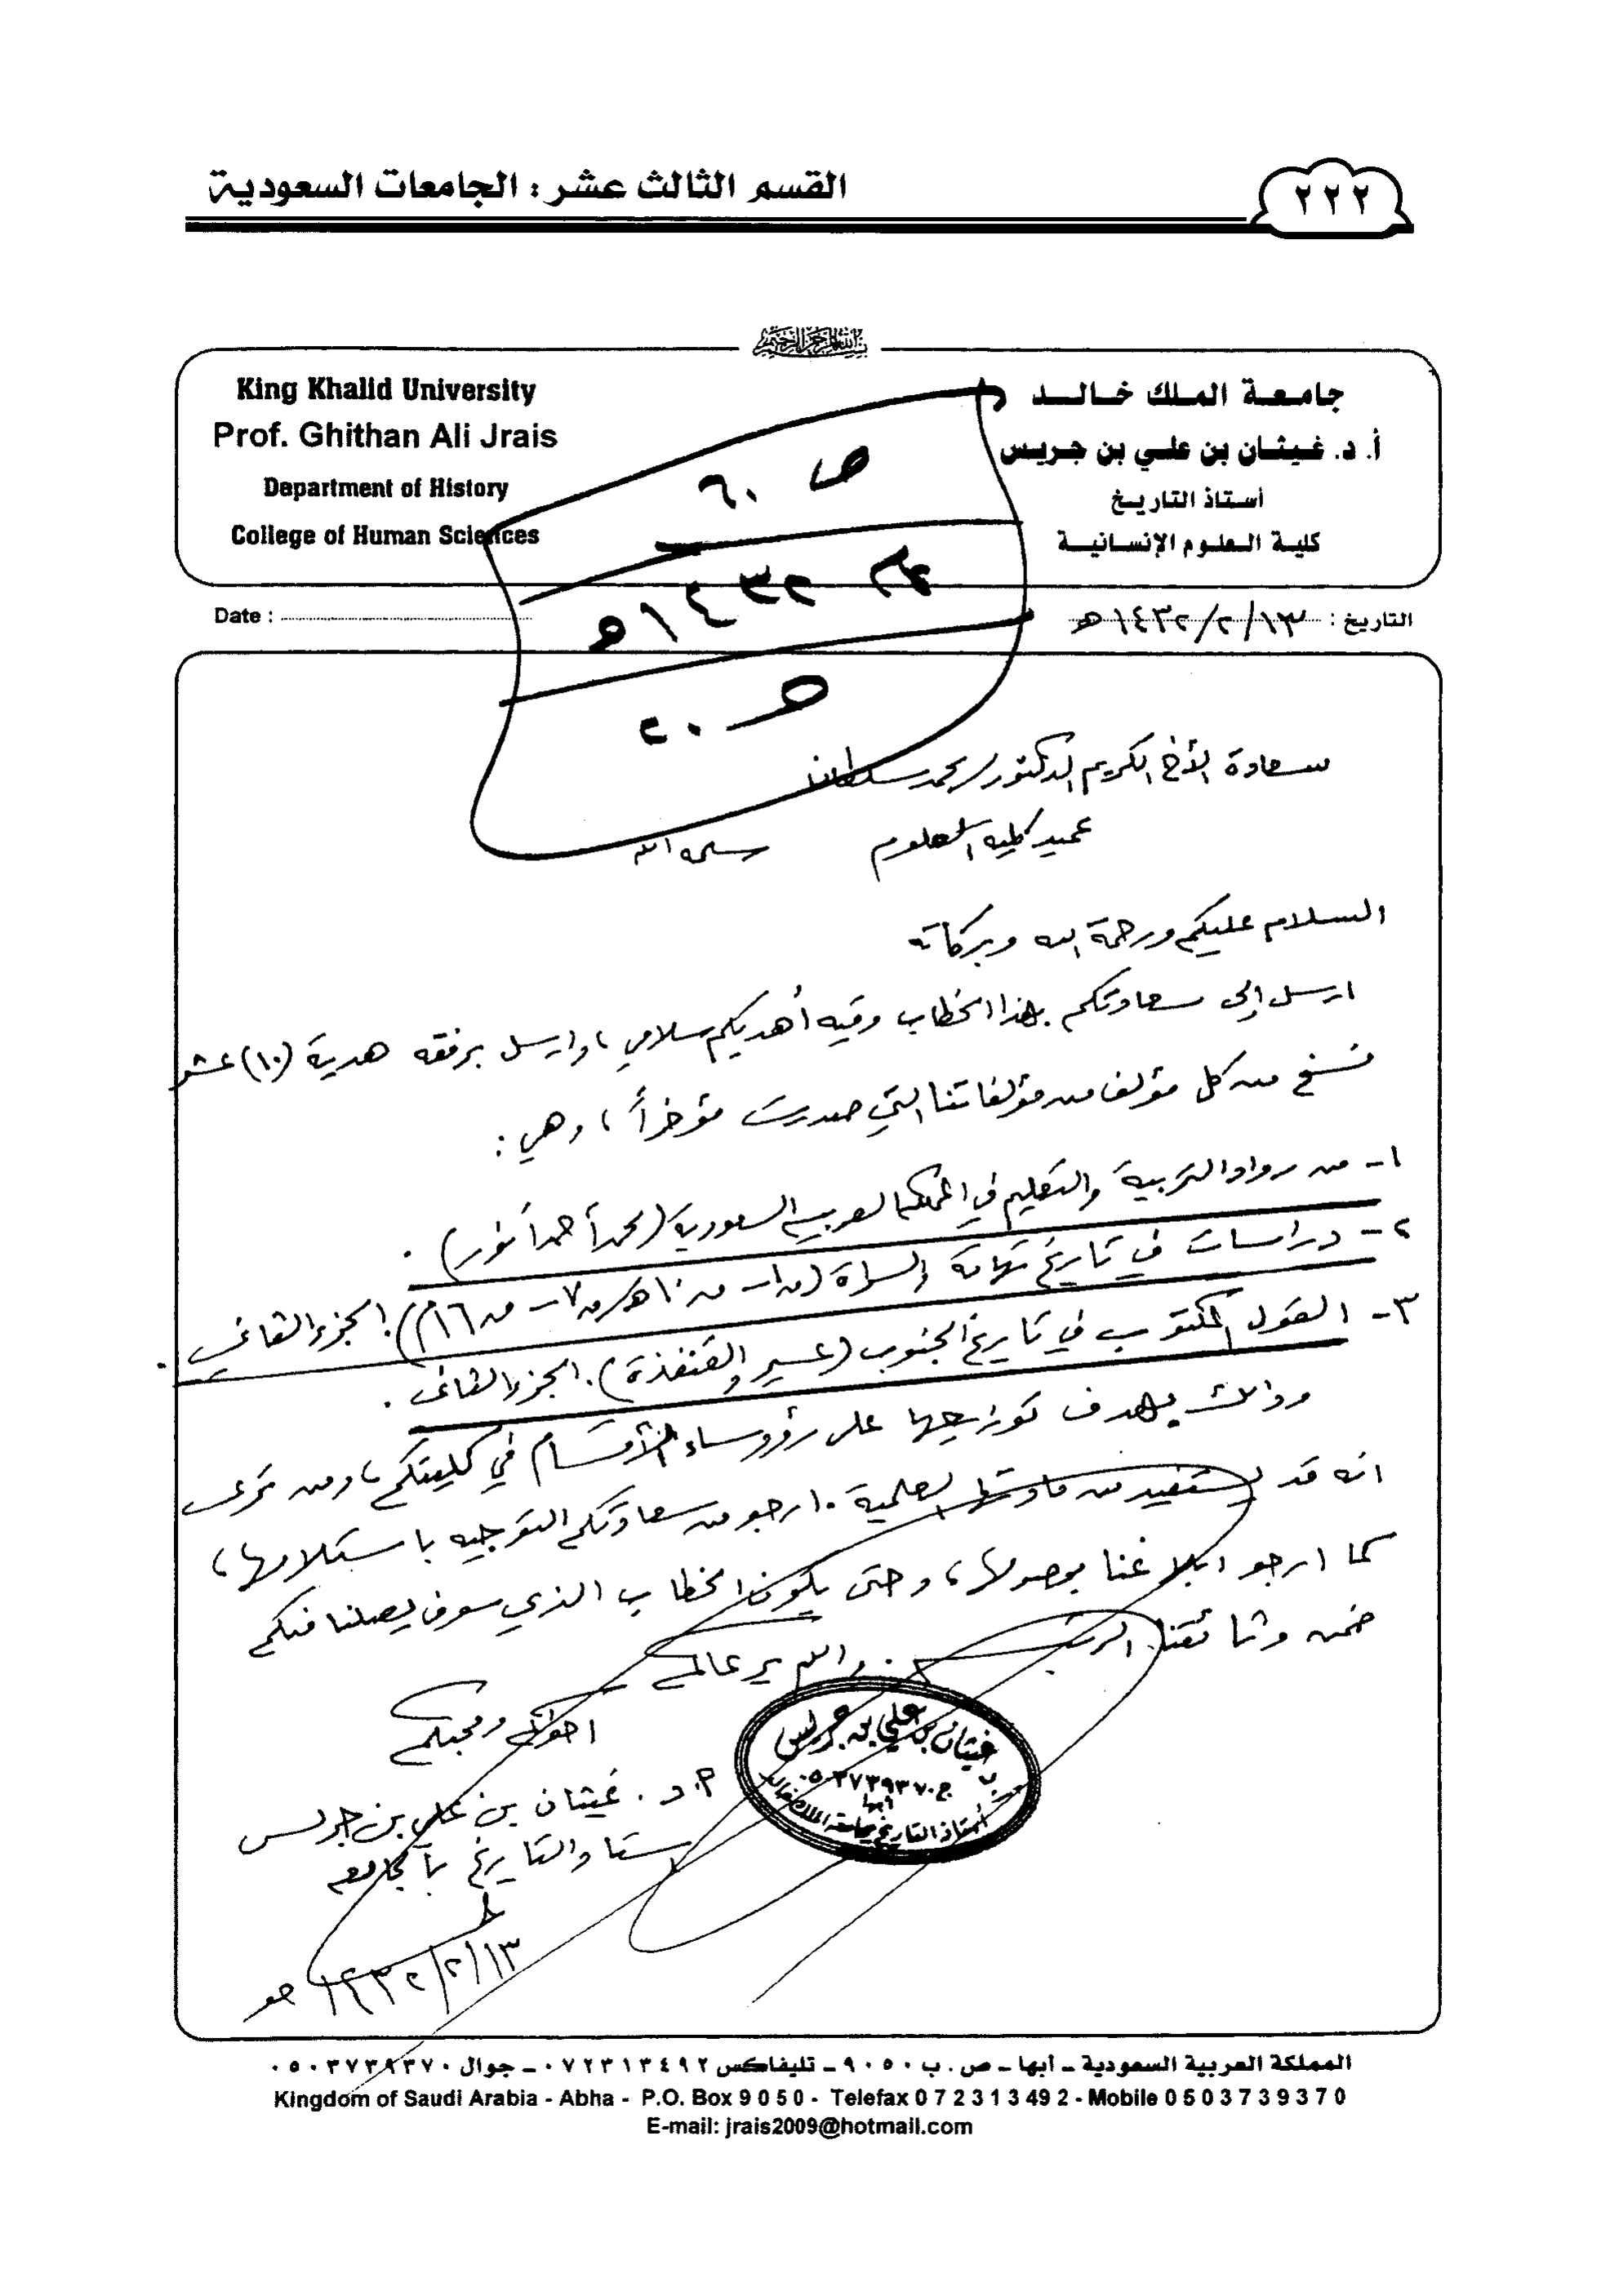 القسم الثالث عشر : الجامعات السعودية
٢٢٢
بسم الله الرحمن الرحيم
جامعة الملك خالد
أ. د. غيثان بن علي بن جريس
أستاذ التاريخ
كلية العلوم الإنسانية
King Khalid University
Prof. Ghithan Ali Jrais
Department of History
College of Human Sciences
التاريخ : ١٤٣٢/٢/١٣هـ
Date :
ص ٦٠
١٤٣٢هـ
سعادة الأخ الكريم الدكتور / محمد سلطان
عميد كلية العلوم سلمه الله
السلام عليكم ورحمة الله وبركاته
ارسل إلى سعادتكم بهذا الخطاب وفيه أهديكم سلامي ، وارسل برفقه هدية (١٠) عشر
نسخ من كل مؤلف من مؤلفاتنا التي صدرت مؤخراً ، وهي :
١- من رواد التربية والتعليم في المملكة العربية السعودية (محمد أحمد أنور) .
٢- دراسات في تاريخ تهامة والسراة (ق١ - ق١٠هـ/ق٧ - ق١٦م) . الجزء الثاني .
٣- القول المكتوب في تاريخ الجنوب (عسير والقنفذة) . الجزء الثاني .
وذلك بهدف توزيعها على رؤوساء الأقسام في كليتكم ، ومن ترى
انه قد يستفيد من مادتها العلمية . ارجو من سعادتكم التوجيه باستلامها ،
كما ارجو ابلاغنا بوصولها ، وحتى يكون الخطاب الذي سوف يصلنا منكم
ضمن وثائقنا . والله يرعاكم
اخوكم ومحبكم
أ.د. غيثان بن علي بن جريس
استاذ التاريخ بالجامعة
١٤٣٢/٢/١٣هـ
غيثان بن علي بن جريس
ج ٠٥٠٣٧٣٩٣٧٠
أبها
أستاذ التاريخ بجامعة الملك خالد
المملكة العربية السعودية ـ أبها ـ ص. ب ٩٠٥٠ ـ تليفاكس ٠٧٢٣١٣٤٩٢ ـ جوال ٠٥٠٣٧٣٩٣٧٠
Kingdom of Saudi Arabia - Abha - P.O. Box 9 0 5 0 - Telefax 0 7 2 3 1 3 4 9 2 - Mobile 0 5 0 3 7 3 9 3 7 0
E-mail: jrais2009@hotmail.com